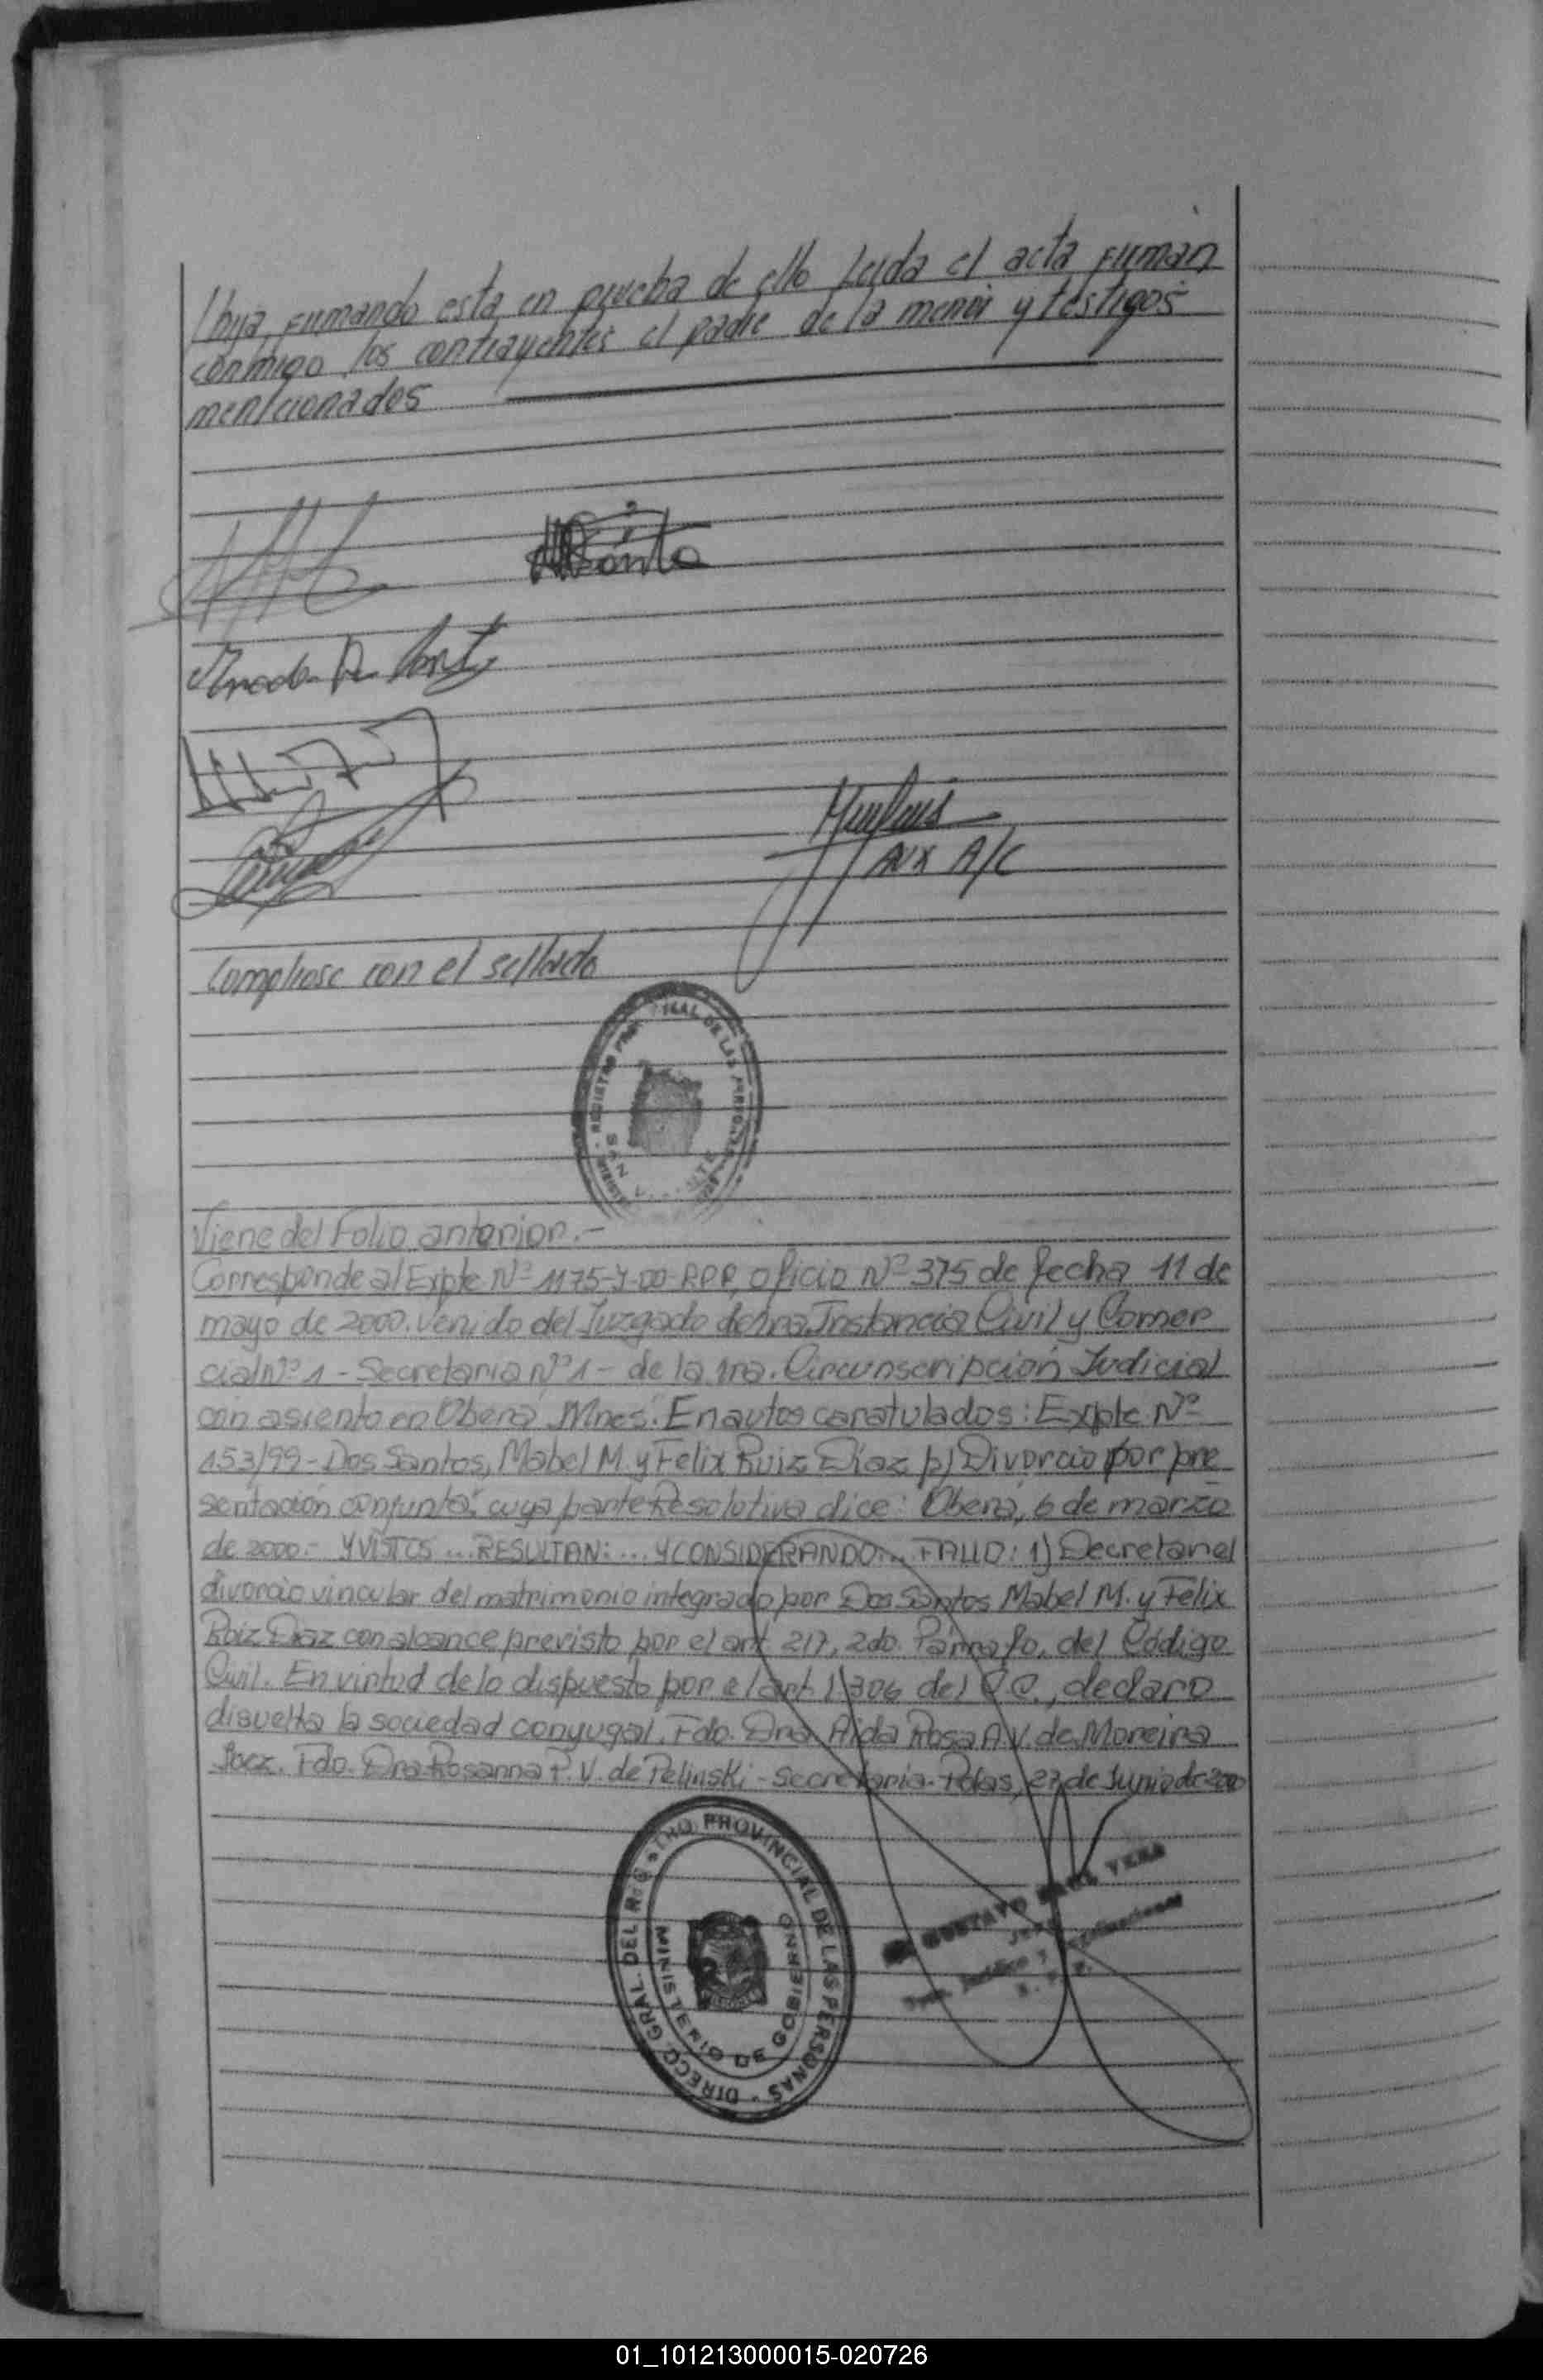 hija, firmando esta en prueba de ello Leida el acta firman
conmigo los contrayentes el padre de la menor y testigos
mencionados
AUX A/C
Cumpliose con el sellado
REGISTRO PROVINCIAL DE LAS PERSONAS
SAN VICENTE
Viene del Folio anterior.-
Corresponde al Expte Nº 1175-Y-00-RPP, oficio Nº 375 de fecha 11 de
mayo de 2000. Venido del Juzgado de 1ra Instancia Civil y Comer
cial Nº 1 - Secretaria Nº 1 - de la 1ra. Circunscripción Judicial
con asiento en Oberá Mnes. En autos caratulados: Expte Nº
153/99 - Dos Santos, Mabel M. y Felix Ruiz Díaz p/ Divorcio por pre
sentación conjunta" cuya parte Resolutiva dice: Oberá, 6 de marzo
de 2000.- Y VISTOS ... RESULTAN: ... Y CONSIDERANDO ... FALLO: 1) Decretar el
divorcio vincular del matrimonio integrado por Dos Santos Mabel M. y Felix
Ruiz Diaz con alcance previsto por el art. 217, 2do. Párrafo, del Código
Civil. En virtud de lo dispuesto por el art 1306 del C.C., declaro
disuelta la sociedad conyugal. Fdo. Dra Aida Rosa A.V. de Moreira
Juez. Fdo. Dra Rosanna P. V. de Pelinski - Secretaria. Pdas, 27 de Junio de 2000
DIRECC. GRAL. DEL REGISTRO PROVINCIAL DE LAS PERSONAS -
MINISTERIO DE GOBIERNO
GUSTAVO VERA
01_101213000015-020726